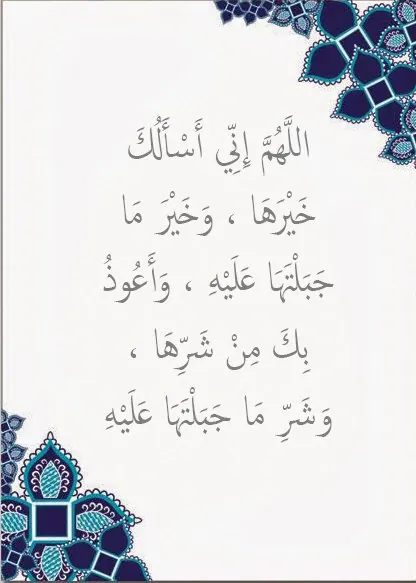 اللَّهُمَّ إِنِّي أَسْأَلُكَ
خَيْرَهَا ، وَخَيْرَ مَا
جَبَلْتَهَا عَلَيْهِ ، وَأَعُوذُ
بِكَ مِنْ شَرِّهَا ،
وَشَرِّ مَا جَبَلْتَهَا عَلَيْهِ